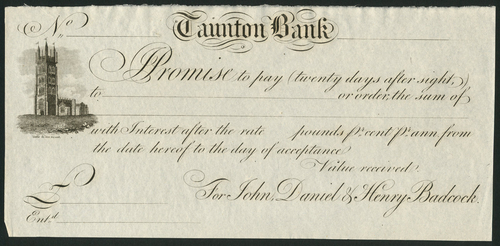 No.
Taunton Bank
I Promise to pay (twenty days after sight,)
to or order, the sum of
with Interest after the rate pounds Pr. cent Pr. ann from
the date hereof to the day of acceptance
Value received
£ For John, Daniel & Henry Badcock.
Entd.